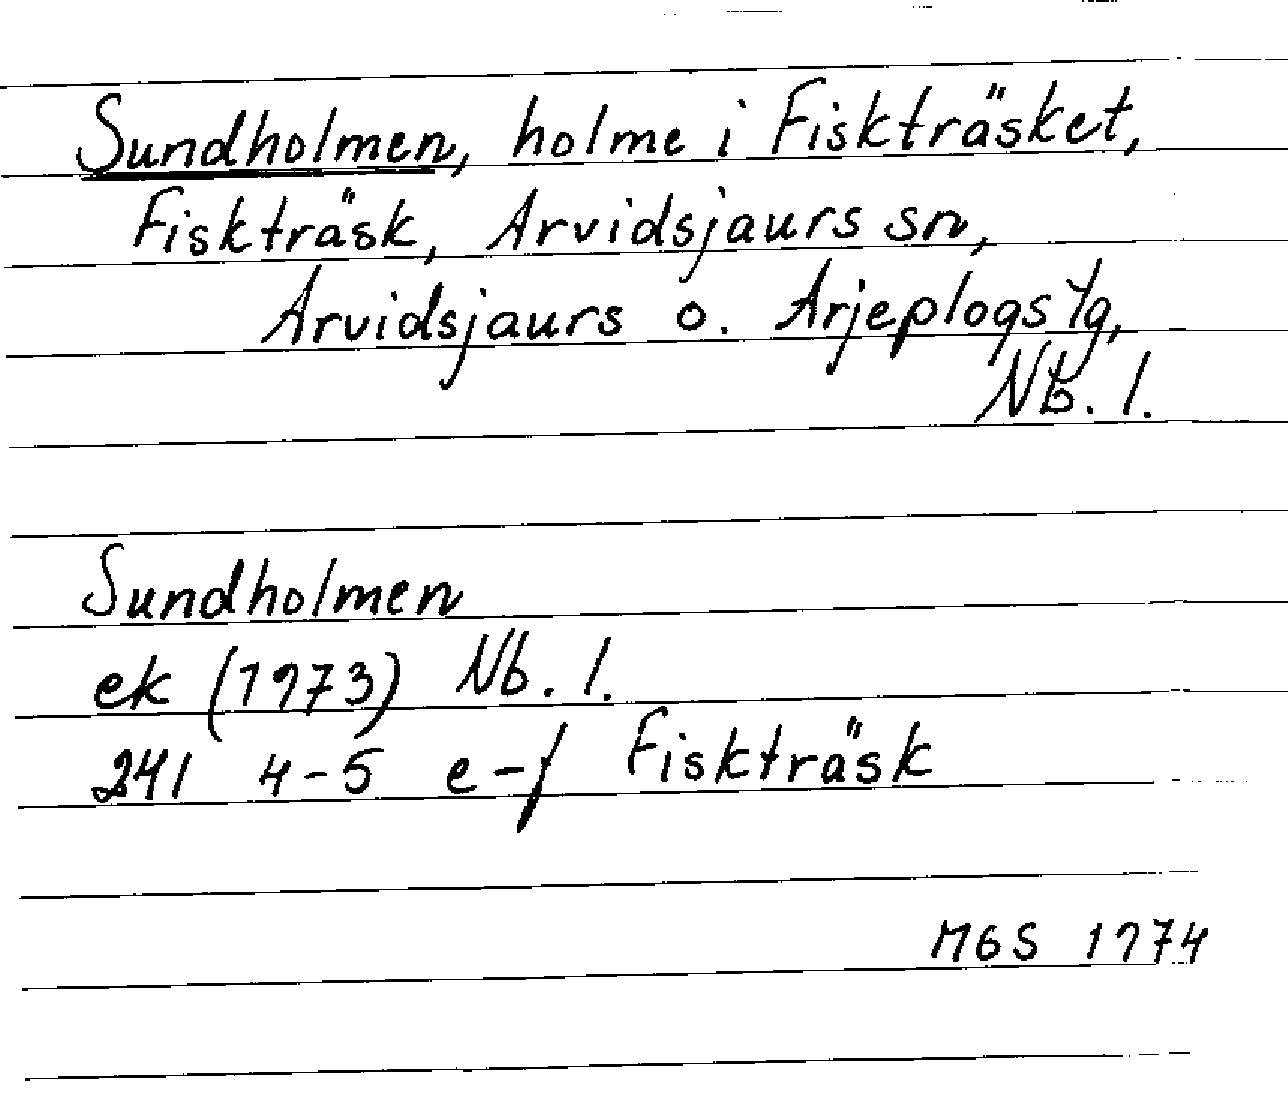 Sundholmen, holme i Fiskträsket,
Fiskträsk, Arvidsjaurs sn,
Arvidsjaurs o. Arjeplogs tg,
Nb. l.
Sundholmen
ek (1973) Nb. l.
241 4-5 e-f Fiskträsk
MGS 1974